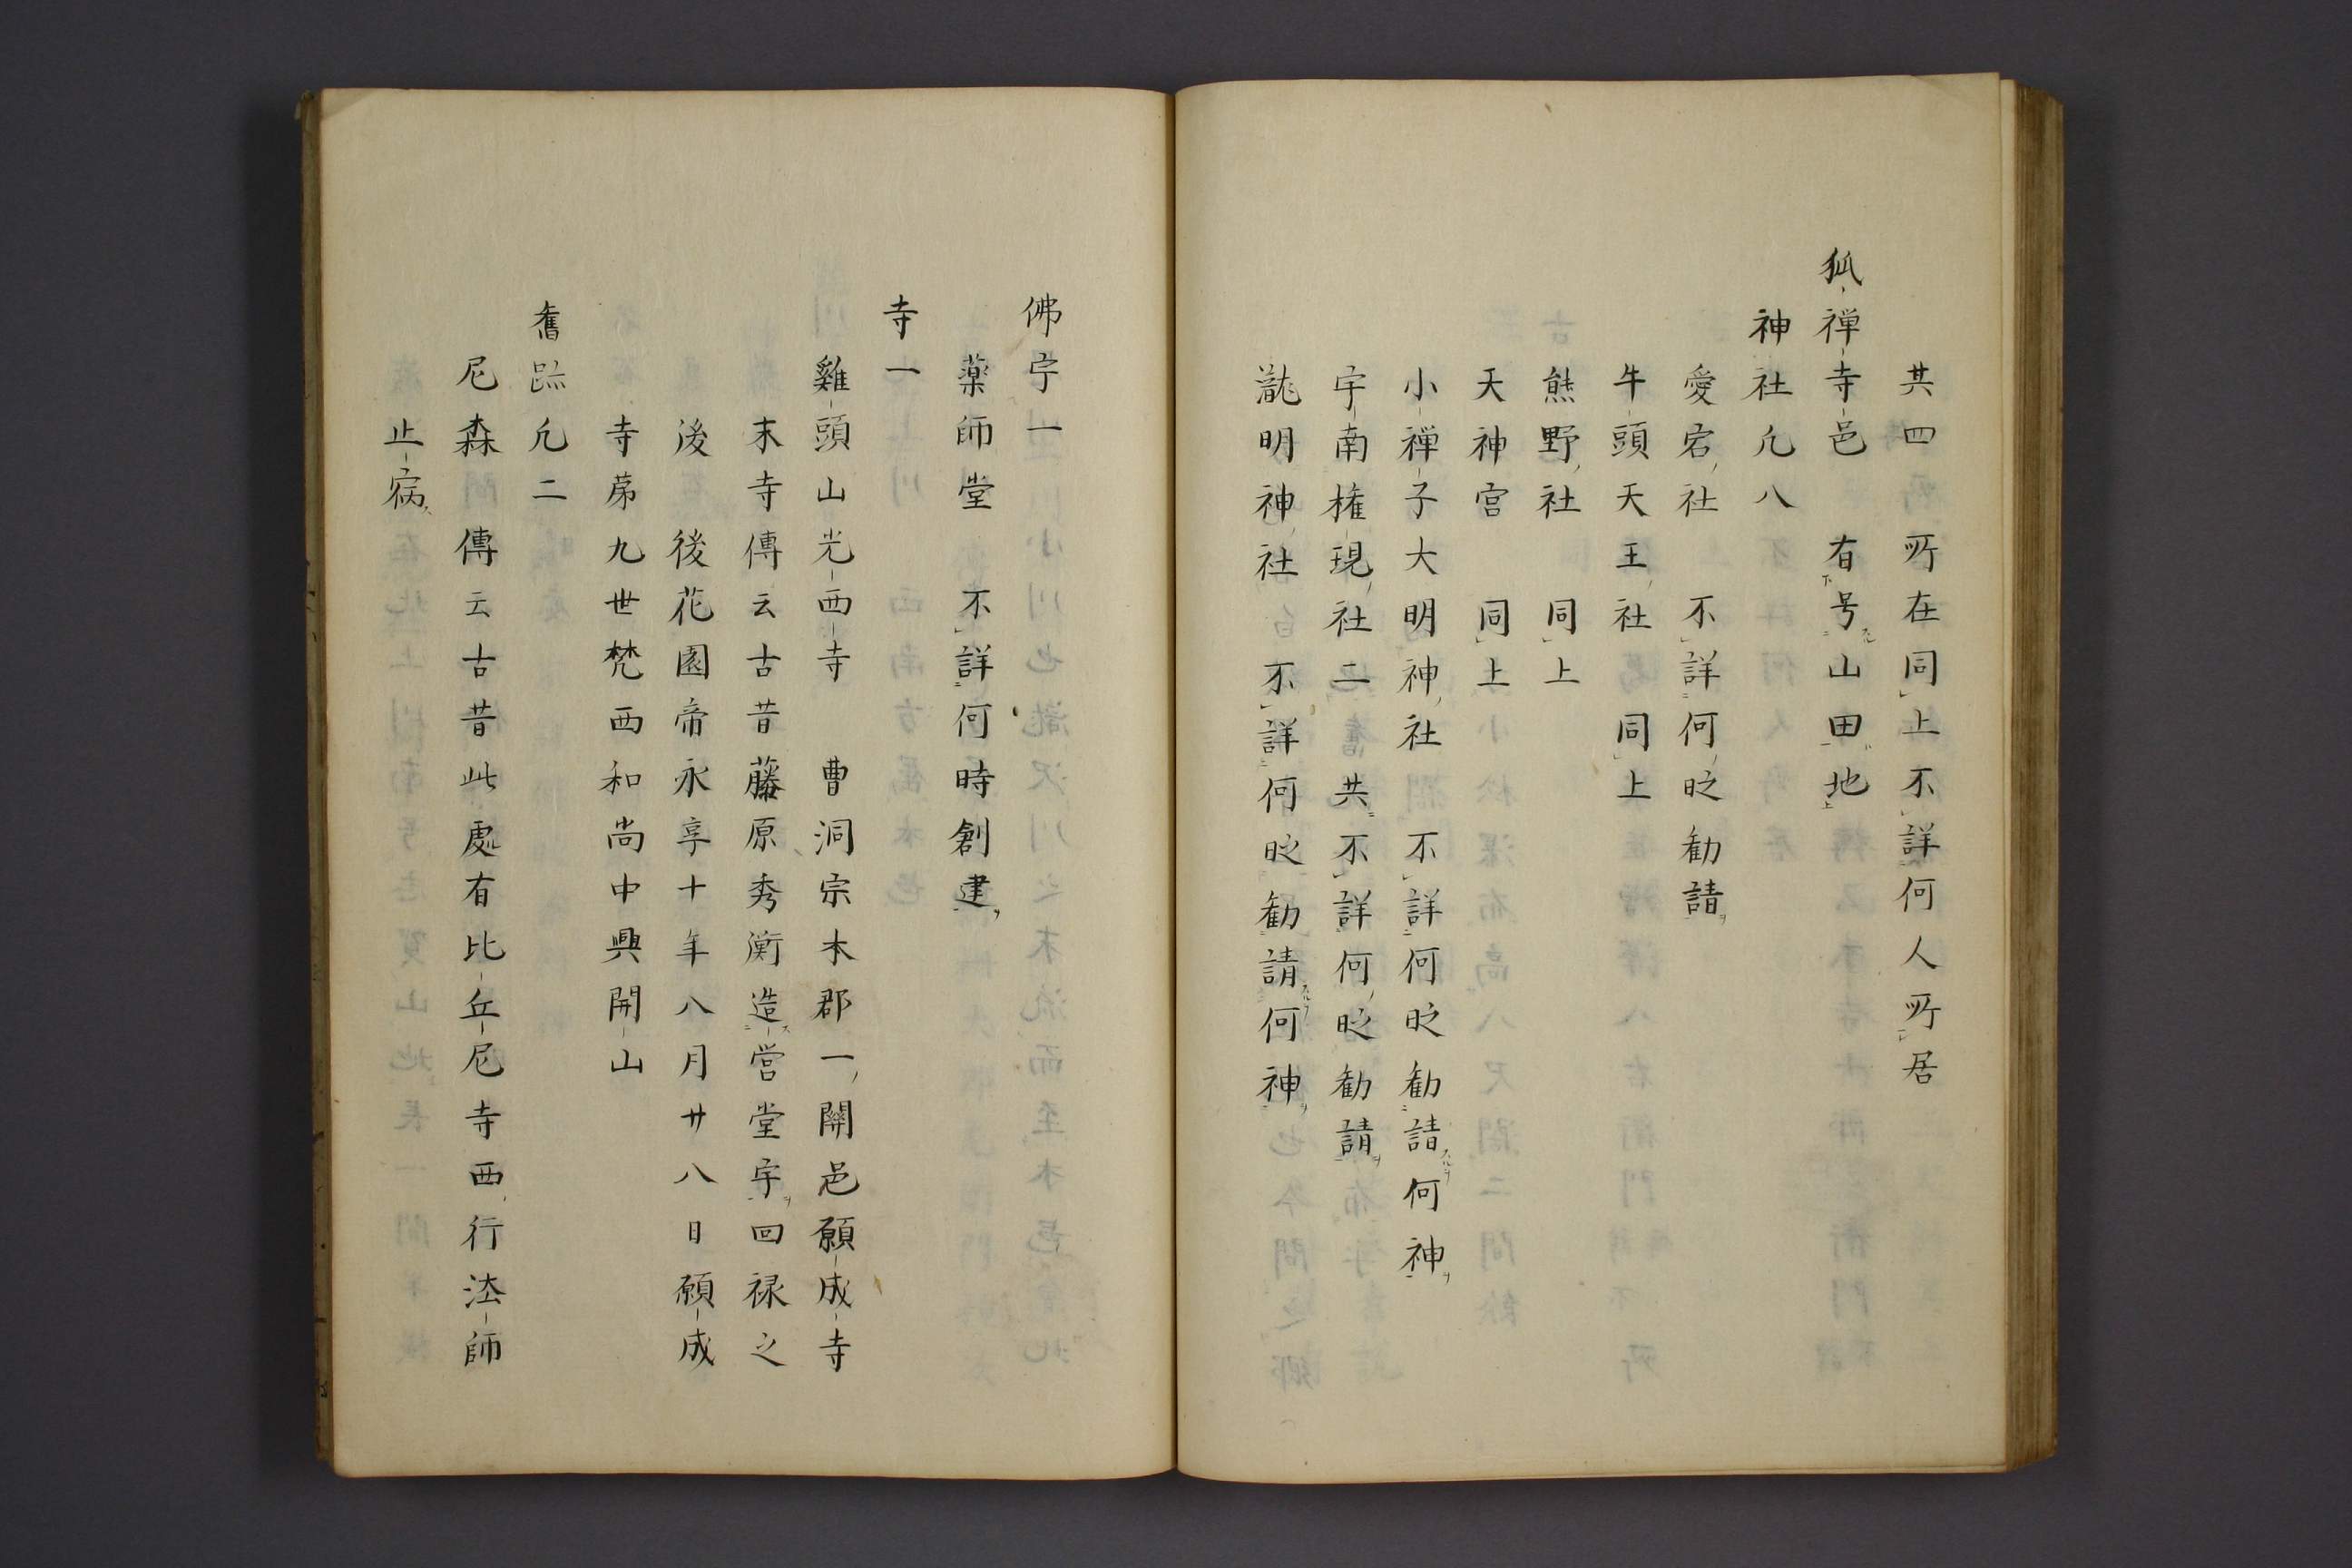 其四 所在同上不詳何人所居
狐禅寺邑 有号山田地
神社凢八
愛宕社 不詳何昑勧請
牛頭天王社 同上
熊野社 同上
天神宮 同上
小禅子大明神社 不詳何昑勧請何神
宇南権現社二 共不詳何昑勧請
瀧明神社 不詳何昑勧請何神
佛宇一
薬師堂 不詳何時創建
寺一
雞頭山光西寺 曹洞宗木郡一関邑願成寺
末寺傳云古昔藤原秀衡造営堂宇回禄之
後 後花園帝永享十年八月廿八日願成
寺苐九世梵西和尚中興開山
舊跡凢二
尼森 傳云古昔此處有比丘尼寺西行法師
止宿